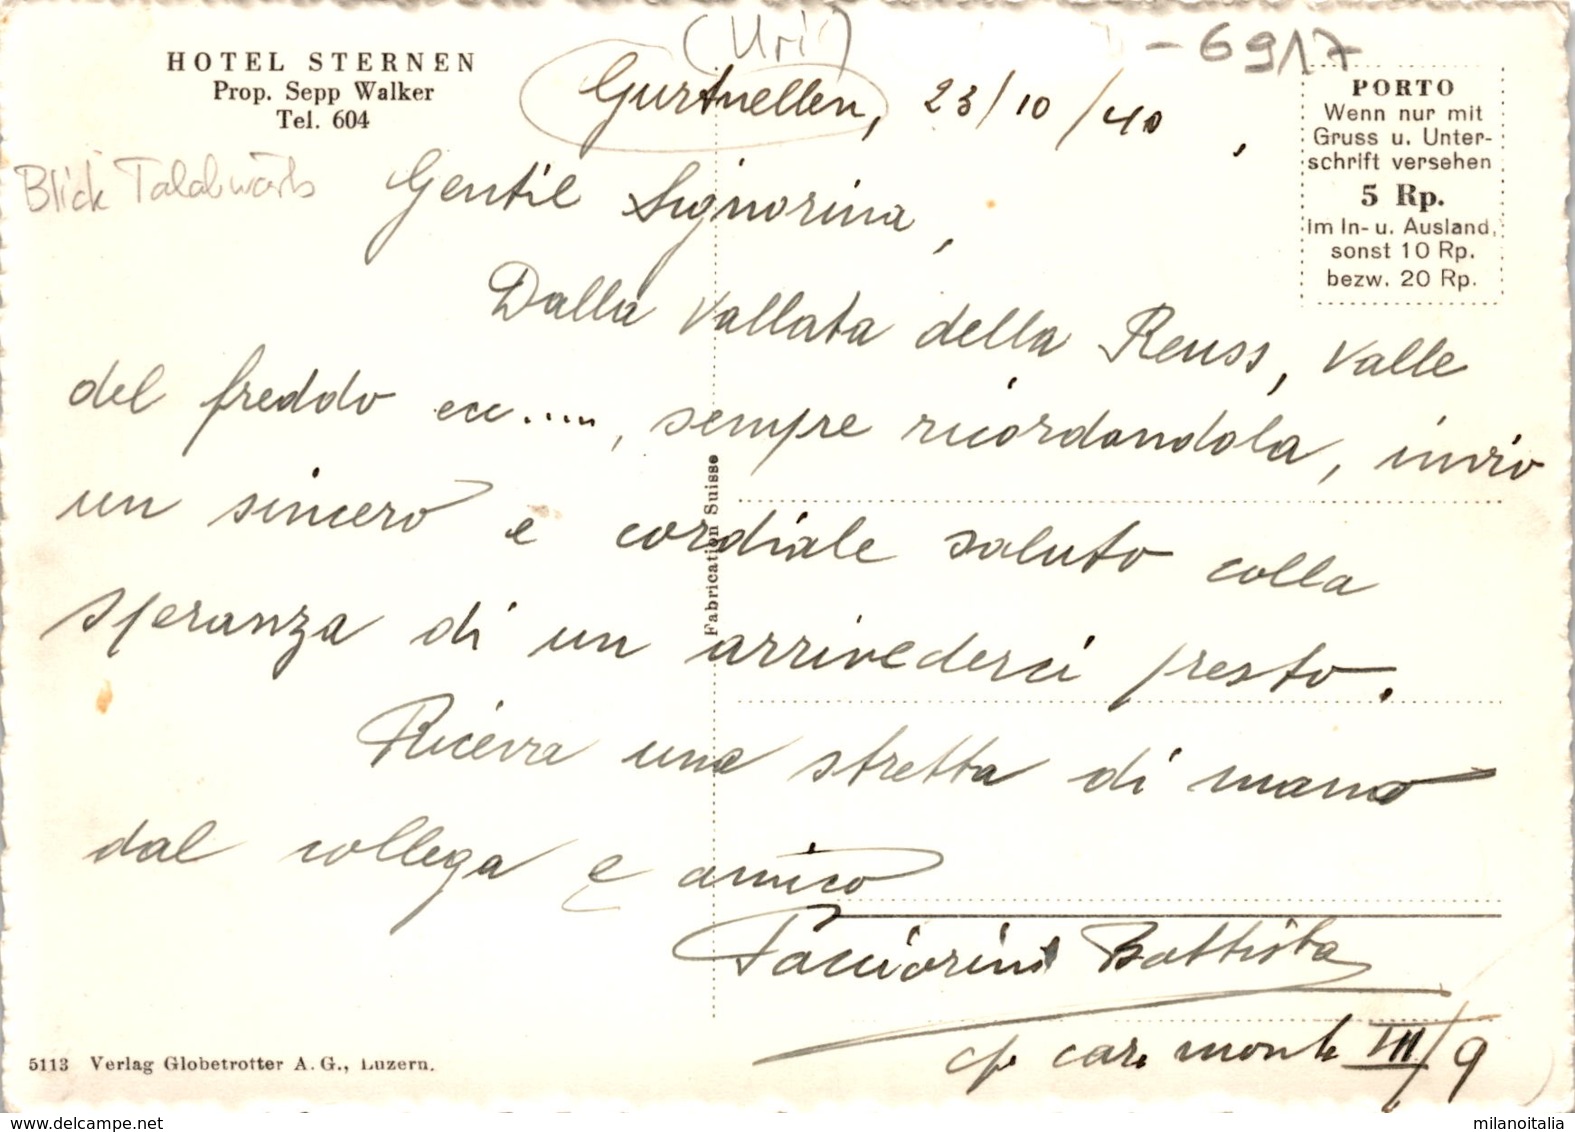 HOTEL STERNEN
Prop. Sepp Walker
Tel. 604
(Uri)
- 6917
Gurtnellen, 23/10/40,
PORTO
Wenn nur mit
Gruss u. Unter-
schrift versehen
5 Rp.
im In- u. Ausland,
sonst 10 Rp.
bezw. 20 Rp.
Blick Talabwärts
Gentil Signorina,
Dalla vallata della Reuss, valle
del freddo ecc....., sempre ricordandola, invio
un sincero e cordiale saluto colla
speranza di un arrivederci presto.
Riceva una stretta di mano
dal collega e amico
Pacciorini Battista
cp. car. mont. III/9
Fabrication Suisse
5113 Verlag Globetrotter A. G., Luzern.
www.delcampe.net
milanoitalia